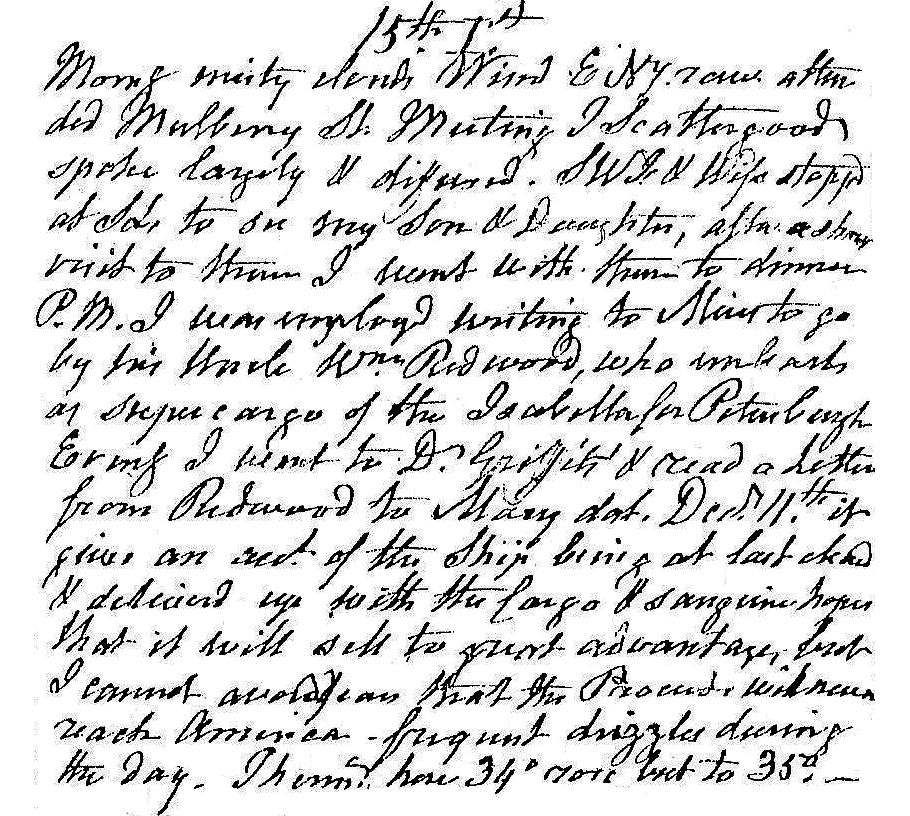 15th 1st
Morng misty clouds Wind E N.E. raw. atten
ded Mulberry St. Meeting J Scattergood
spoke largely & diffused. SWF & Wife stopp'd
at Sds to see my Son & Daughter, after a short
visit to them I went with them to dinner
P.M. I was employd writing to Miers to go
by his Uncle Wm Redwood, who embarks
as supercargo of the Isabella for Petersburgh
Eveng I went to Dr Griffitts & read a Letter
from Redwood to Mary dat. Decr 11th it
gives an acct of the Ship being at last cleard
& deliverd up with the Cargo & sanguine hopes
that it will sell to great advantage, but
I cannot avoid fears that the Proceeds will never
reach America - frequent drizzles during
the day. Thermr here 34° rose but to 35°. —